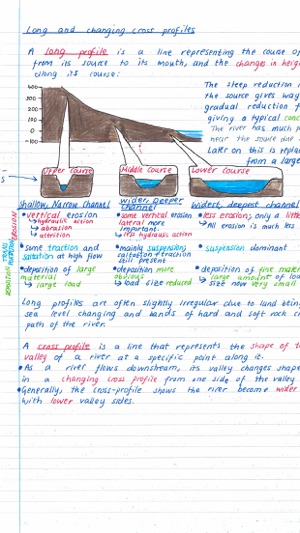 Long and changing cross profiles
A long profile is a line representing the course of
from its source to its mouth, and the changes in heig
along its course:
The steep reduction i
the source gives way
gradual reduction f
giving a typical conc
The river has much p
near the source due
Later on, this is replac
from a large
400
300
200
100
0
-100
Upper course
Middle course
Lower course
Shallow, Narrow channel
wider, deeper channel
widest, deepest channel
• vertical erosion
↳ hydraulic action
↳ abrasion
↳ attrition
• some vertical erosion
lateral more
important.
↳ less hydraulic action
• less erosion; only a little
↳ All erosion is much less
• some traction and
saltation at high flow
• mainly suspension;
saltation & traction
still present
• suspension dominant
• deposition of large
material
↳ large load
• deposition more
obvious
↳ load size reduced
• deposition of fine mater
↳ large amount of loa
size now very small
EROSION
DEPOSITION
Long profiles are often slightly irregular due to land bein
sea level changing and bands of hard and soft rock
path of the river.
A cross profile is a line that represents the shape of t
valley of a river at a specific point along it.
• As a river flows downstream, its valley changes shape
in a changing cross profile from one side of the valley
• Generally, the cross-profile shows the river become wider
with lower valley sides.